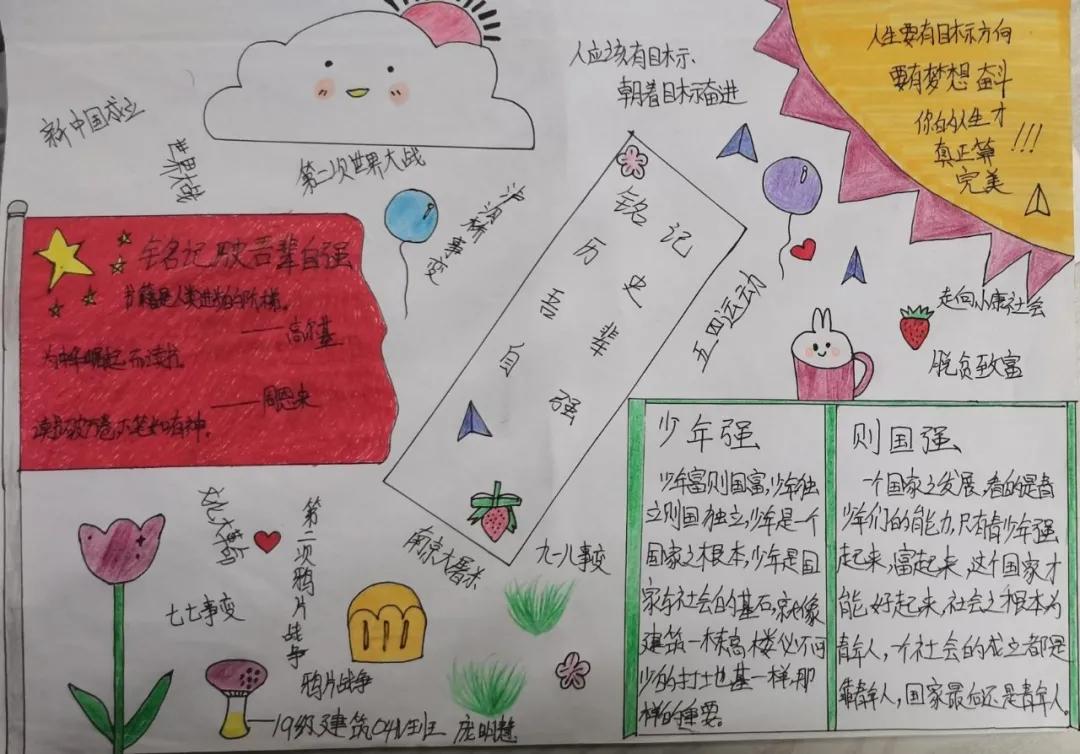 人应该有目标、
朝着目标奋进
人生要有目标方向
要有梦想 奋斗
你的人生才
真正算
完美 !!!
新中国成立
世界大战
第二次世界大战
卢沟桥事变
铭记历史吾辈自强
铭记历史吾辈自强
书籍是人类进步的阶梯。
——高尔基
为中华崛起而读书。
——周恩来
读书破万卷下笔如有神。
五四运动
走向小康社会
脱贫致富
少年强
少年富则国富,少年独
立则国独立,少年是一个
国家之根本,少年是国
家与社会的基石,就像
建筑一栋高楼必不可
少的打土也基一样,那
样的重要。
则国强
一个国家之发展,看的是青
少年们的能力,只有青少年强
起来,富起来,这个国家才
能好起来,社会之根本为
青年人,一个社会的成立都是
靠青年人,国家最后还是青年人。
南京大屠杀
九一八事变
文化大革命
第二次鸦片战争
七七事变
鸦片战争
——19级建筑04班 庞明慧